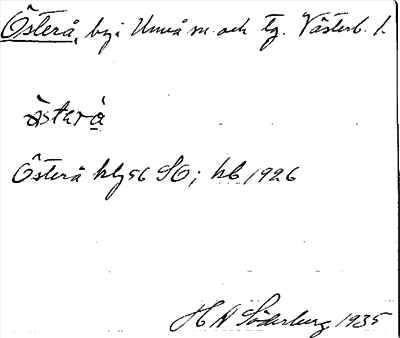 Österå, by i Umeå sn. och tg. Västerb. l.
åstərå
Österå kbl 56 SO; kb 1926
H A Söderberg 1935